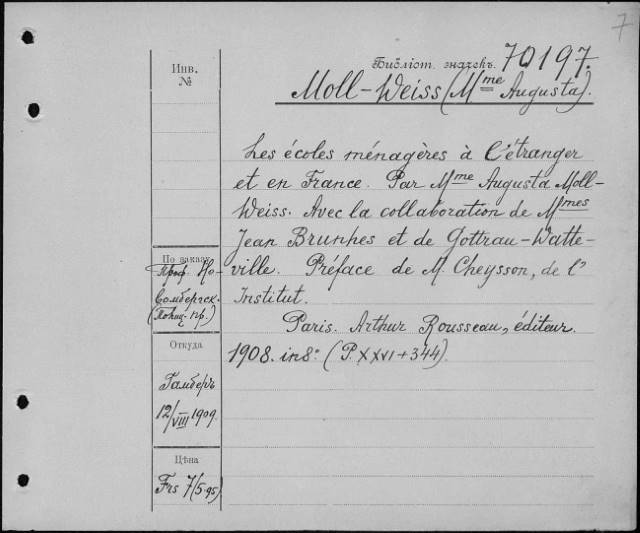 7
Инв.
№
Библіот. значекъ. 70197.
Moll-Weiss (Mme Augusta).
Les écoles ménagères à l'étranger
et en France. Par Mme Augusta Moll-
Weiss. Avec la collaboration de Mmes
Jean Brunhes et de Gottrau-Watte-
ville. Préface de M. Cheysson, de l'
Institut.
Paris. Arthur Rousseau, éditeur.
1908. in 8° (P. XXVI+344).
По заказу
Проф.
Откуда
Гамберъ
12/VIII 1909.
Цѣна
Frs 7 (5.95)